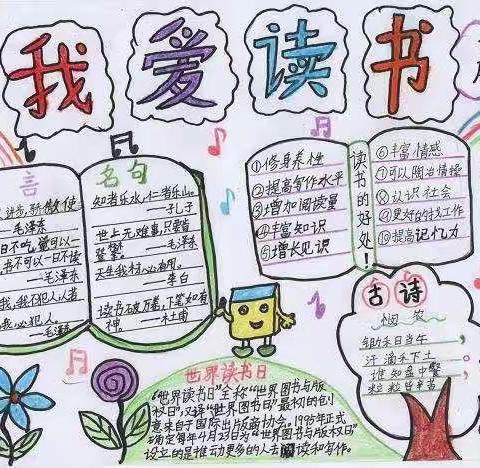 我爱读书
言
进步,骄傲使
—毛泽东
日不吃,觉可以一
书不可以一日不读
—毛泽东
我,我不犯人,人若
我必犯人。
—毛泽东
名句
知者乐水,仁者乐山。
—孔子
世上无难事,只要肯
攀登。 —毛泽东
天生我材必有用。
—李白
读书破万卷,下笔如有
神 —杜甫
读书的好处!
①修身养性
②提高写作水平
③增加阅读量
④丰富知识
⑤增长见识
⑥丰富情感
⑦可以陶冶情操
⑧认识社会
⑨更好的找工作
⑩提高记忆力
古诗
悯农
锄禾日当午,
汗滴禾下土。
谁知盘中餐,
粒粒皆辛苦。
世界读书日
“世界读书日”全称“世界图书与版
权日”,又译“世界图书日”最初的创
意来自于国际出版商协会。1995年正式
确定每年4月23日为“世界图书与版权日”
设立的是推动更多的人去阅读和写作。